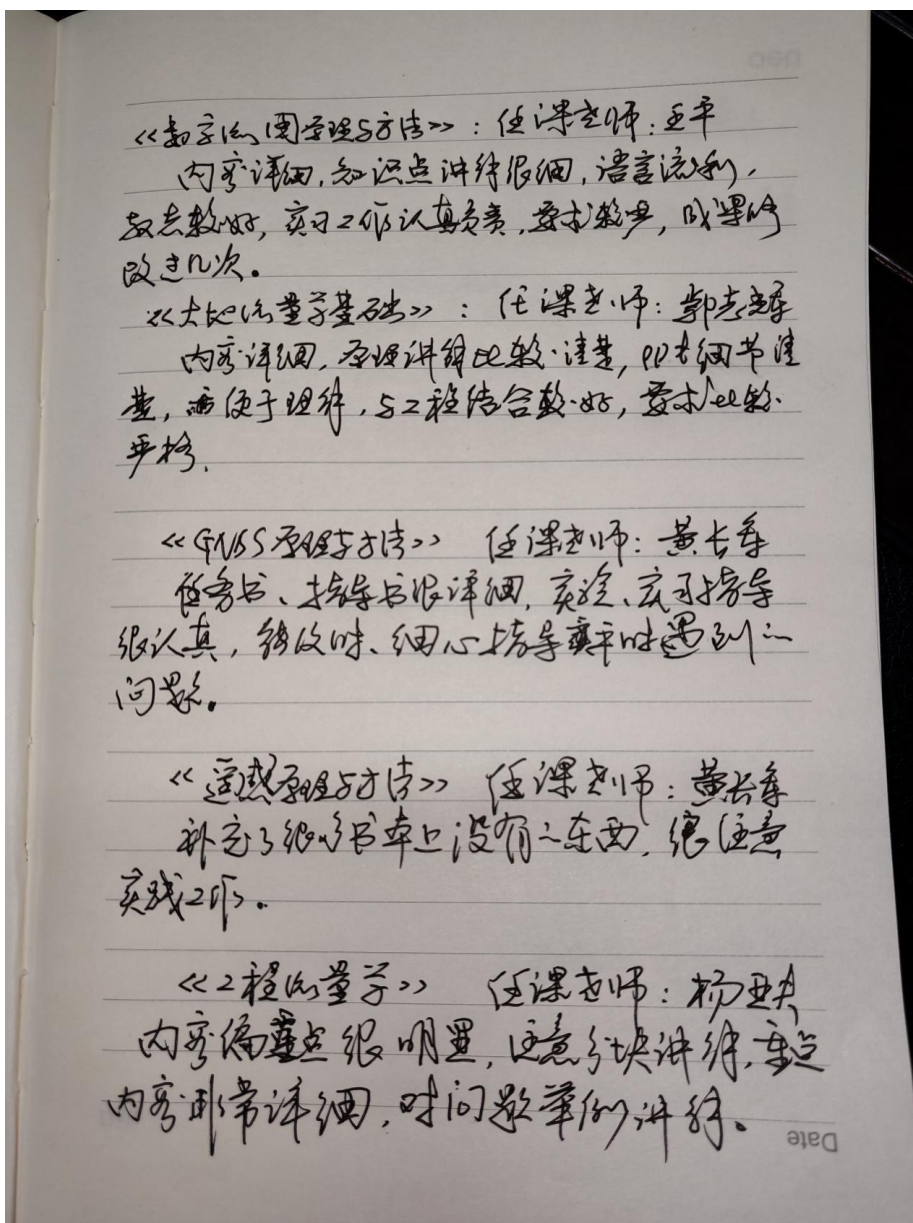 <<数字测图原理与方法>>：任课老师：王平
内容详细，知识点讲解很细，语言流利，
教态较好，实习工作认真负责，要求较严，成果修
改进几次。
<<大地测量学基础>>：任课老师：郭
内容详细，原理讲解比较清楚，细节清
楚，便于理解，与工程结合较好，要求比较
严格，
<<GNSS原理与方法>> 任课老师：黄长军
任务书、指导书很详细，实验、实习指导
很认真，能及时、细心指导平时遇到的
问题。
<<遥感原理与方法>> 任课老师：黄长军
补充了很多书本上没有的东西，很注意
实践工作。
<<工程测量学>> 任课老师：杨
内容偏重点很明显，注意分块讲解，重点
内容非常详细，对问题举例讲解。
Date